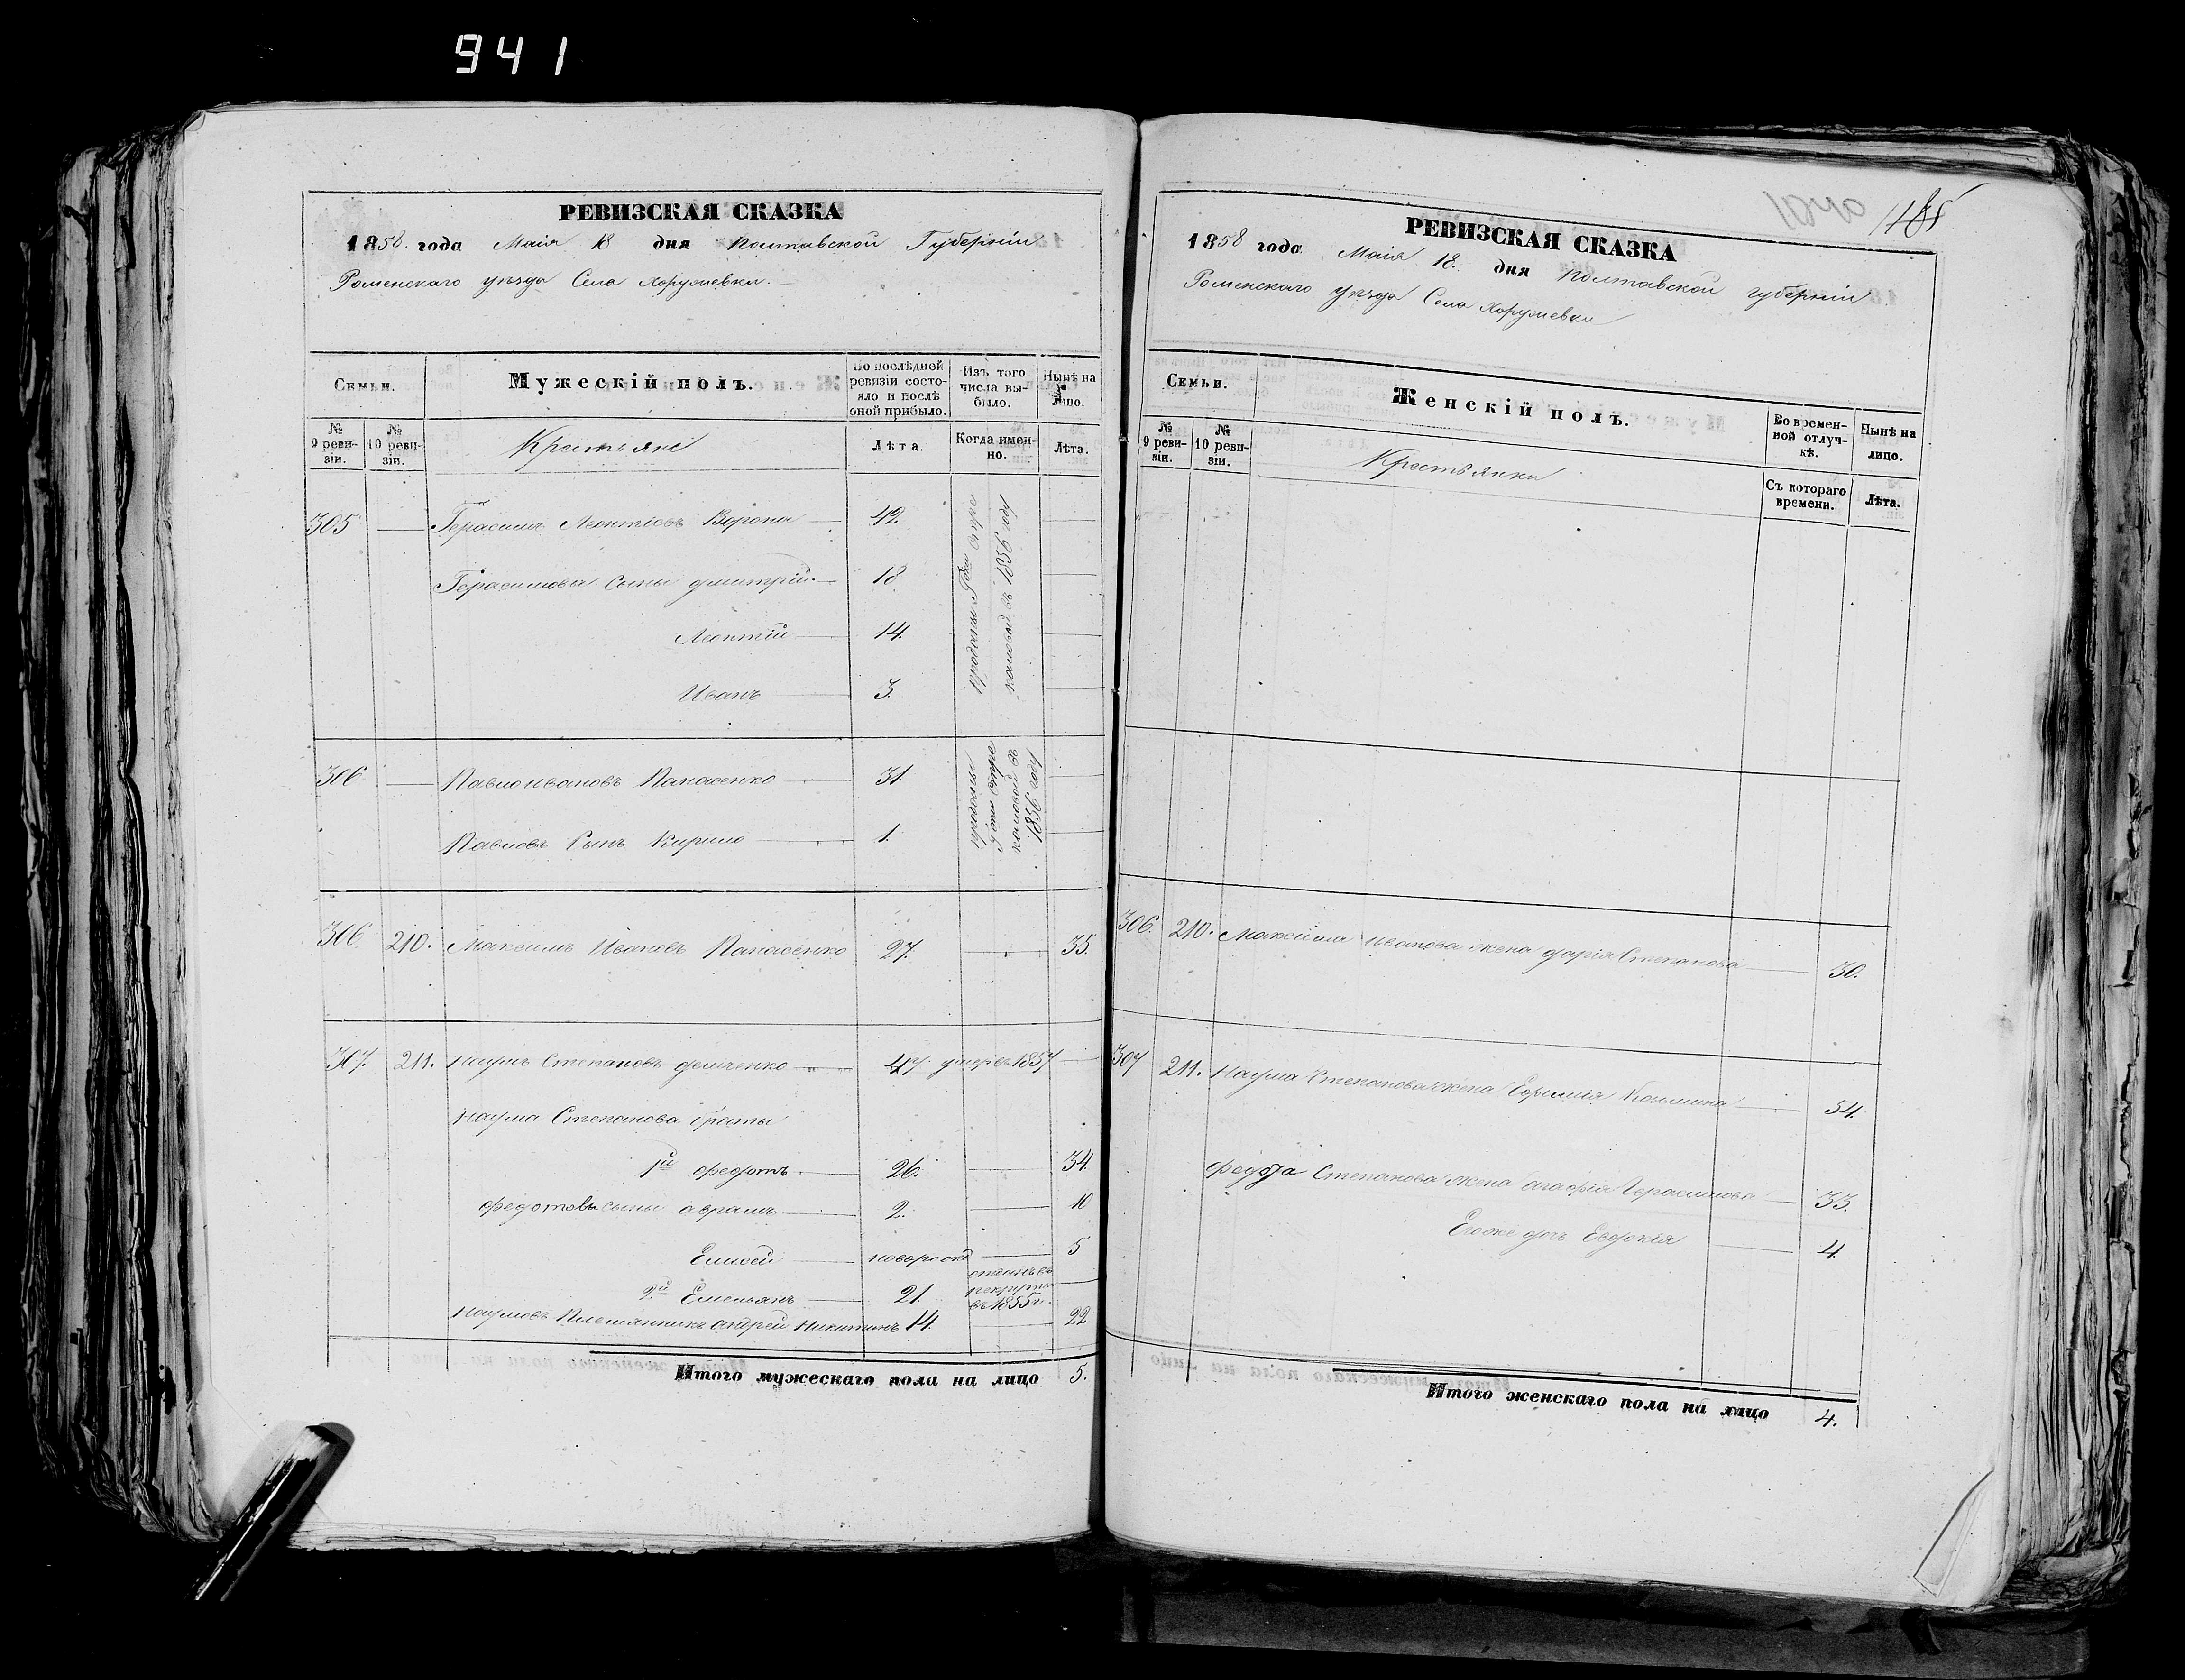 941
РЕВИЗСКАЯ СКАЗКА
1858 года Маія 18 дня Полтавской Губерніи
Роменскаго уѣзда Села Хоружевки.
Семьи.
Мужескій полъ.
Во послѣдней ревизіи состояло и послѣ оной прибыло.
Изъ того числа выбыло.
Нынѣ на лицо.
№ 9 ревизіи.
№ 10 ревизіи.
Крестьяне
Лѣта.
Когда именно.
Лѣта.
305 — Герасимъ Леонтіевъ Ворона — 42.
Герасимова Сыны Дмитрій — 18.
Леонтій — 14.
Иванъ — 3.
проданы Г
въ 1856 году
306 — Павло Ивановъ Панасенко — 31.
Павловъ Сынъ Кирило — 1.
проданы
1856 году
306. 210. Максимъ Ивановъ Панасенко 27. — 35.
307. 211. Наумъ Степановъ Демченко 47. умеръ въ 1857 —
Наума Степанова браты
1й Федотъ. — 26. — 34.
Федотовы сыны Аврамъ — 2. — 10
Елисей — новорожд — 5
2й Емельянъ — 21. отданъ въ рекруты въ 1855 г. —
Наумовъ Племянникъ Андрей Никитинъ 14. — 22
Итого мужескаго пола на лицо 5.
РЕВИЗСКАЯ СКАЗКА
1858 года Маія 18. дня Полтавской губерніи
Роменскаго уѣзда Села Хоружевки
Семьи.
Женскій полъ.
Во временной отлучкѣ.
Нынѣ на лицо.
№ 9 ревизіи.
№ 10 ревизіи.
Крестьянки
Съ котораго времени.
Лѣта.
306. 210. Максима Иванова жена Дарія Степанова — 30.
307 211. Наума Степанова жена Ефимія Козьмина — 54.
Федота Степанова жена Агафія Герасимова — 33.
Егоже дочь Евдокія — 4.
Итого женскаго пола на лицо 4.